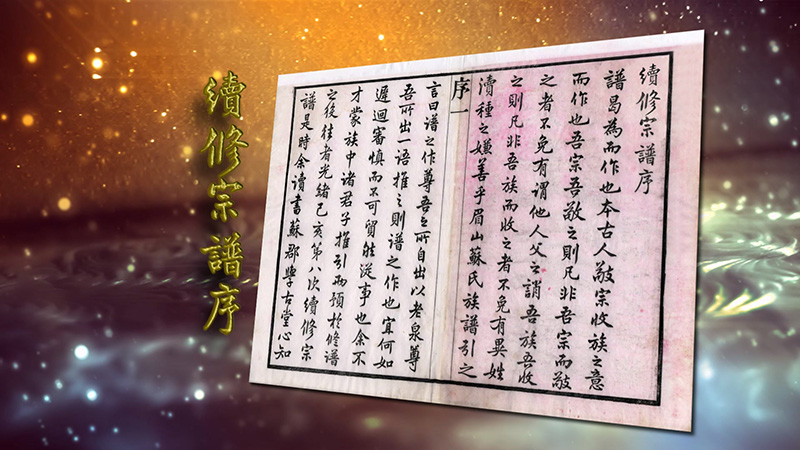 續修宗譜序
續修宗譜序
譜曷為而作也本古人敬宗收族之意
而作也吾宗吾敬之則凡非吾宗而敬
之者不免有謂他人父之誚吾族吾收
之則凡非吾族而收之者不免有異姓
瀆種之嫌善乎眉山蘇氏族譜引之
序一
言曰譜之作尊吾之所自出以老泉尊
吾所出一語推之則譜之作也宜何如
遲迴審慎而不可貿然從事也余不
才蒙族中諸君子推引而預於修譜
之役往者光緒己亥第八次續修宗
譜是時余讀書蘇郡學古堂心知